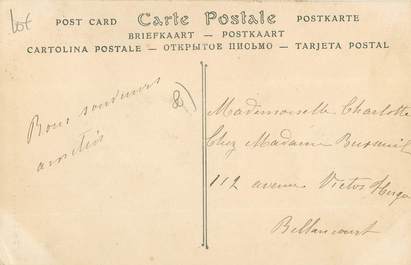 Lot
POST CARD Carte Postale POSTKARTE
BRIEFKAART — POSTKAART
CARTOLINA POSTALE — ОТКРЫТОЕ ПИСЬМО — TARJETA POSTAL
Bons souvenirs
amitiés
Mademoiselle Charlotte
Chez Madame
112 avenue Victor Hugo
Billancourt